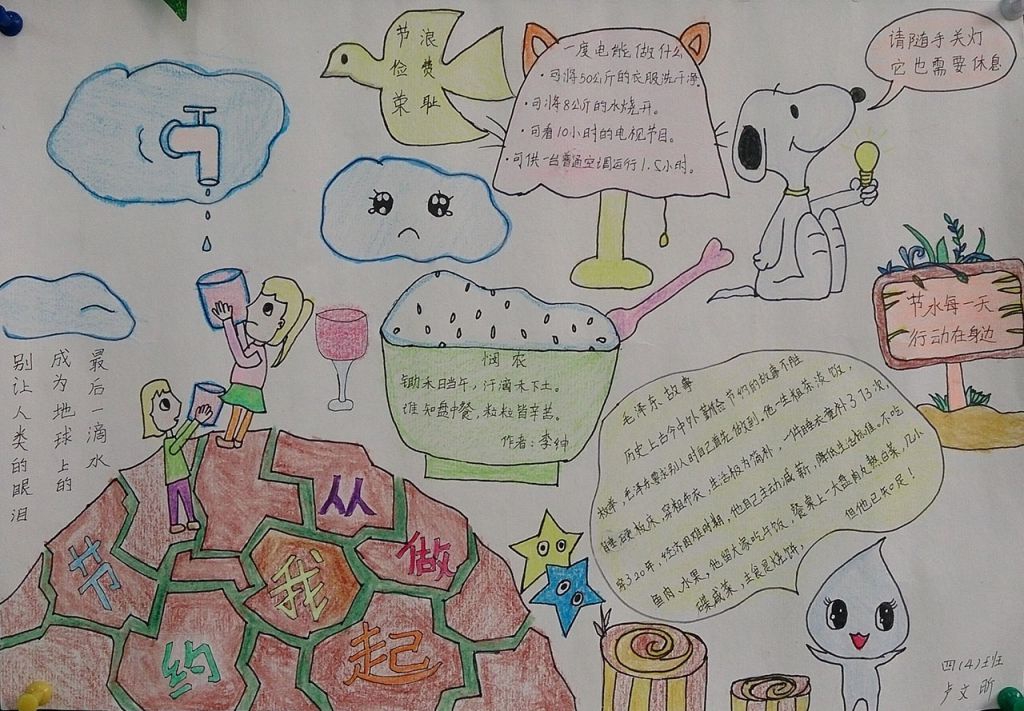 节俭荣
浪费耻
一度电能做什么
·可将50公斤的衣服洗干净。
·可将8公斤的水烧开。
·可看10小时的电视节目。
·可供一台普通空调运行1.5小时。
请随手关灯
它也需要休息
节水每一天
行动在身边
别让人类的眼泪
成为地球上的
最后一滴水
悯农
锄禾日当午，汗滴禾下土。
谁知盘中餐，粒粒皆辛苦。
作者：李绅
毛泽东故事
历史上古今中外勤俭节约的故事不胜
枚举，毛泽东要求别人时自己首先做到。他一生粗茶淡饭，
睡硬板床，穿粗布衣，生活极为简朴，一件睡衣竟补了73次，
穿了20年，经济困难时期，他自己主动减薪，降低生活标准。不吃
鱼肉、水果，他留大家吃午饭，餐桌上一大盘肉丸熬白菜，几小
碟咸菜，主食是烧饼，但他已知足！
节约
从我做起
四(4)班
卢文昕